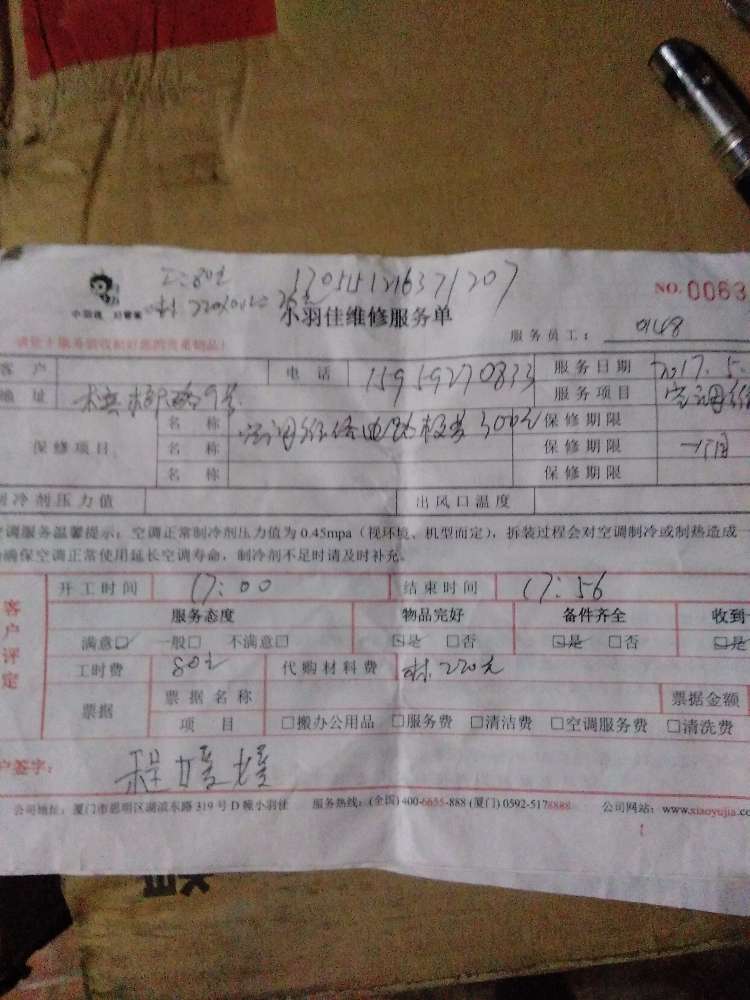 工:80元 1705151216371207
材:220
NO.0063
小羽佳维修服务单
服务员工: 0148
客户 电话 15959270833 服务日期 2017.5.
地址 9号 服务项目 空调维
保修项目 名称 空调维修电路板 300元 保修期限
名称 保修期限 一个月
名称 保修期限
制冷剂压力值 出风口温度
空调服务温馨提示:空调正常制冷剂压力值为 0.45mpa(视环境、机型而定),拆装过程会对空调制冷或制热造成一
确保空调正常使用延长空调寿命,制冷剂不足时请及时补充。
客户评定
开工时间 17:00 结束时间 17:56
服务态度 物品完好 备件齐全 收到
满意☑ 一般□ 不满意□ ☑是 □否 ☑是 □否 ☑是
工时费 80元 代购材料费 材:220元
票据 票据名称 票据金额
项目 □搬办公用品 □服务费 □清洁费 □空调服务费 □清洗费
户签字: 程媛媛
公司地址:厦门市思明区湖滨东路 319 号 D 幢小羽佳 服务热线:(全国)400-6655-888 (厦门) 0592-5178888 公司网站:www.xiaoyujia.co